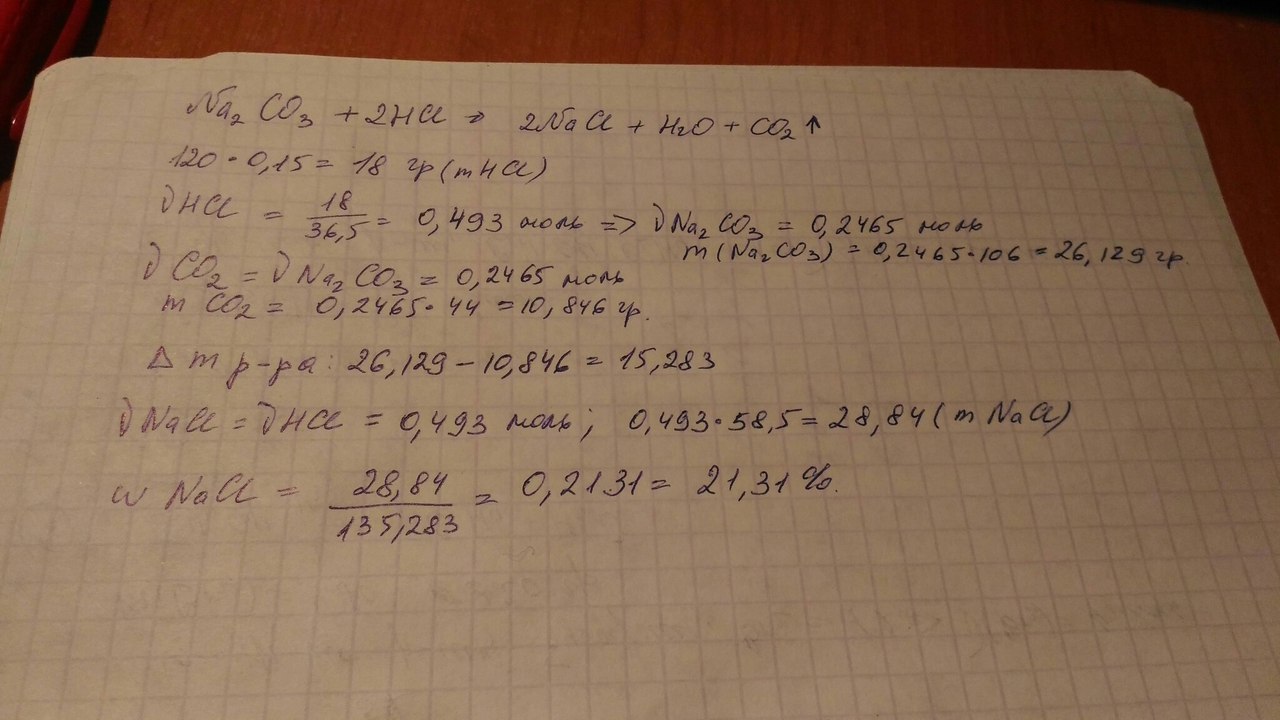 Na₂CO₃ + 2HCl → 2NaCl + H₂O + CO₂↑
120 · 0,15 = 18 гр (mHCl)
νHCl = 18/36,5 = 0,493 моль => νNa₂CO₃ = 0,2465 моль
m(Na₂CO₃) = 0,2465·106 = 26,129 гр.
νCO₂ = νNa₂CO₃ = 0,2465 моль
mCO₂ = 0,2465·44 = 10,846 гр.
Δ m р-ра: 26,129 – 10,846 = 15,283
νNaCl = νHCl = 0,493 моль; 0,493·58,5 = 28,84 (mNaCl)
ω NaCl = 28,84/135,283 = 0,2131 = 21,31%.